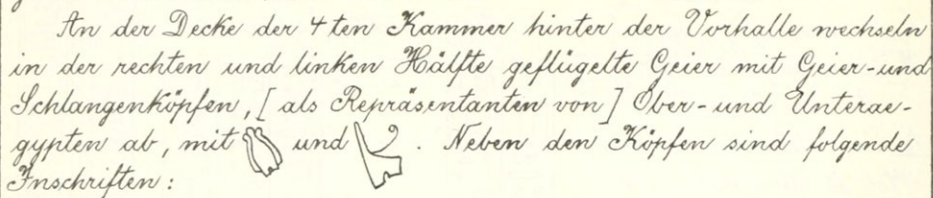 An der Decke der 4ten Kammer hinter der Vorhalle wechseln
in der rechten und linken Hälfte geflügelte Geier mit Geier- und
Schlangenköpfen, [als Repräsentanten von] Ober- und Unterae-
gypten ab, mit 𓋑 und 𓋔. Neben den Köpfen sind folgende
Inschriften: